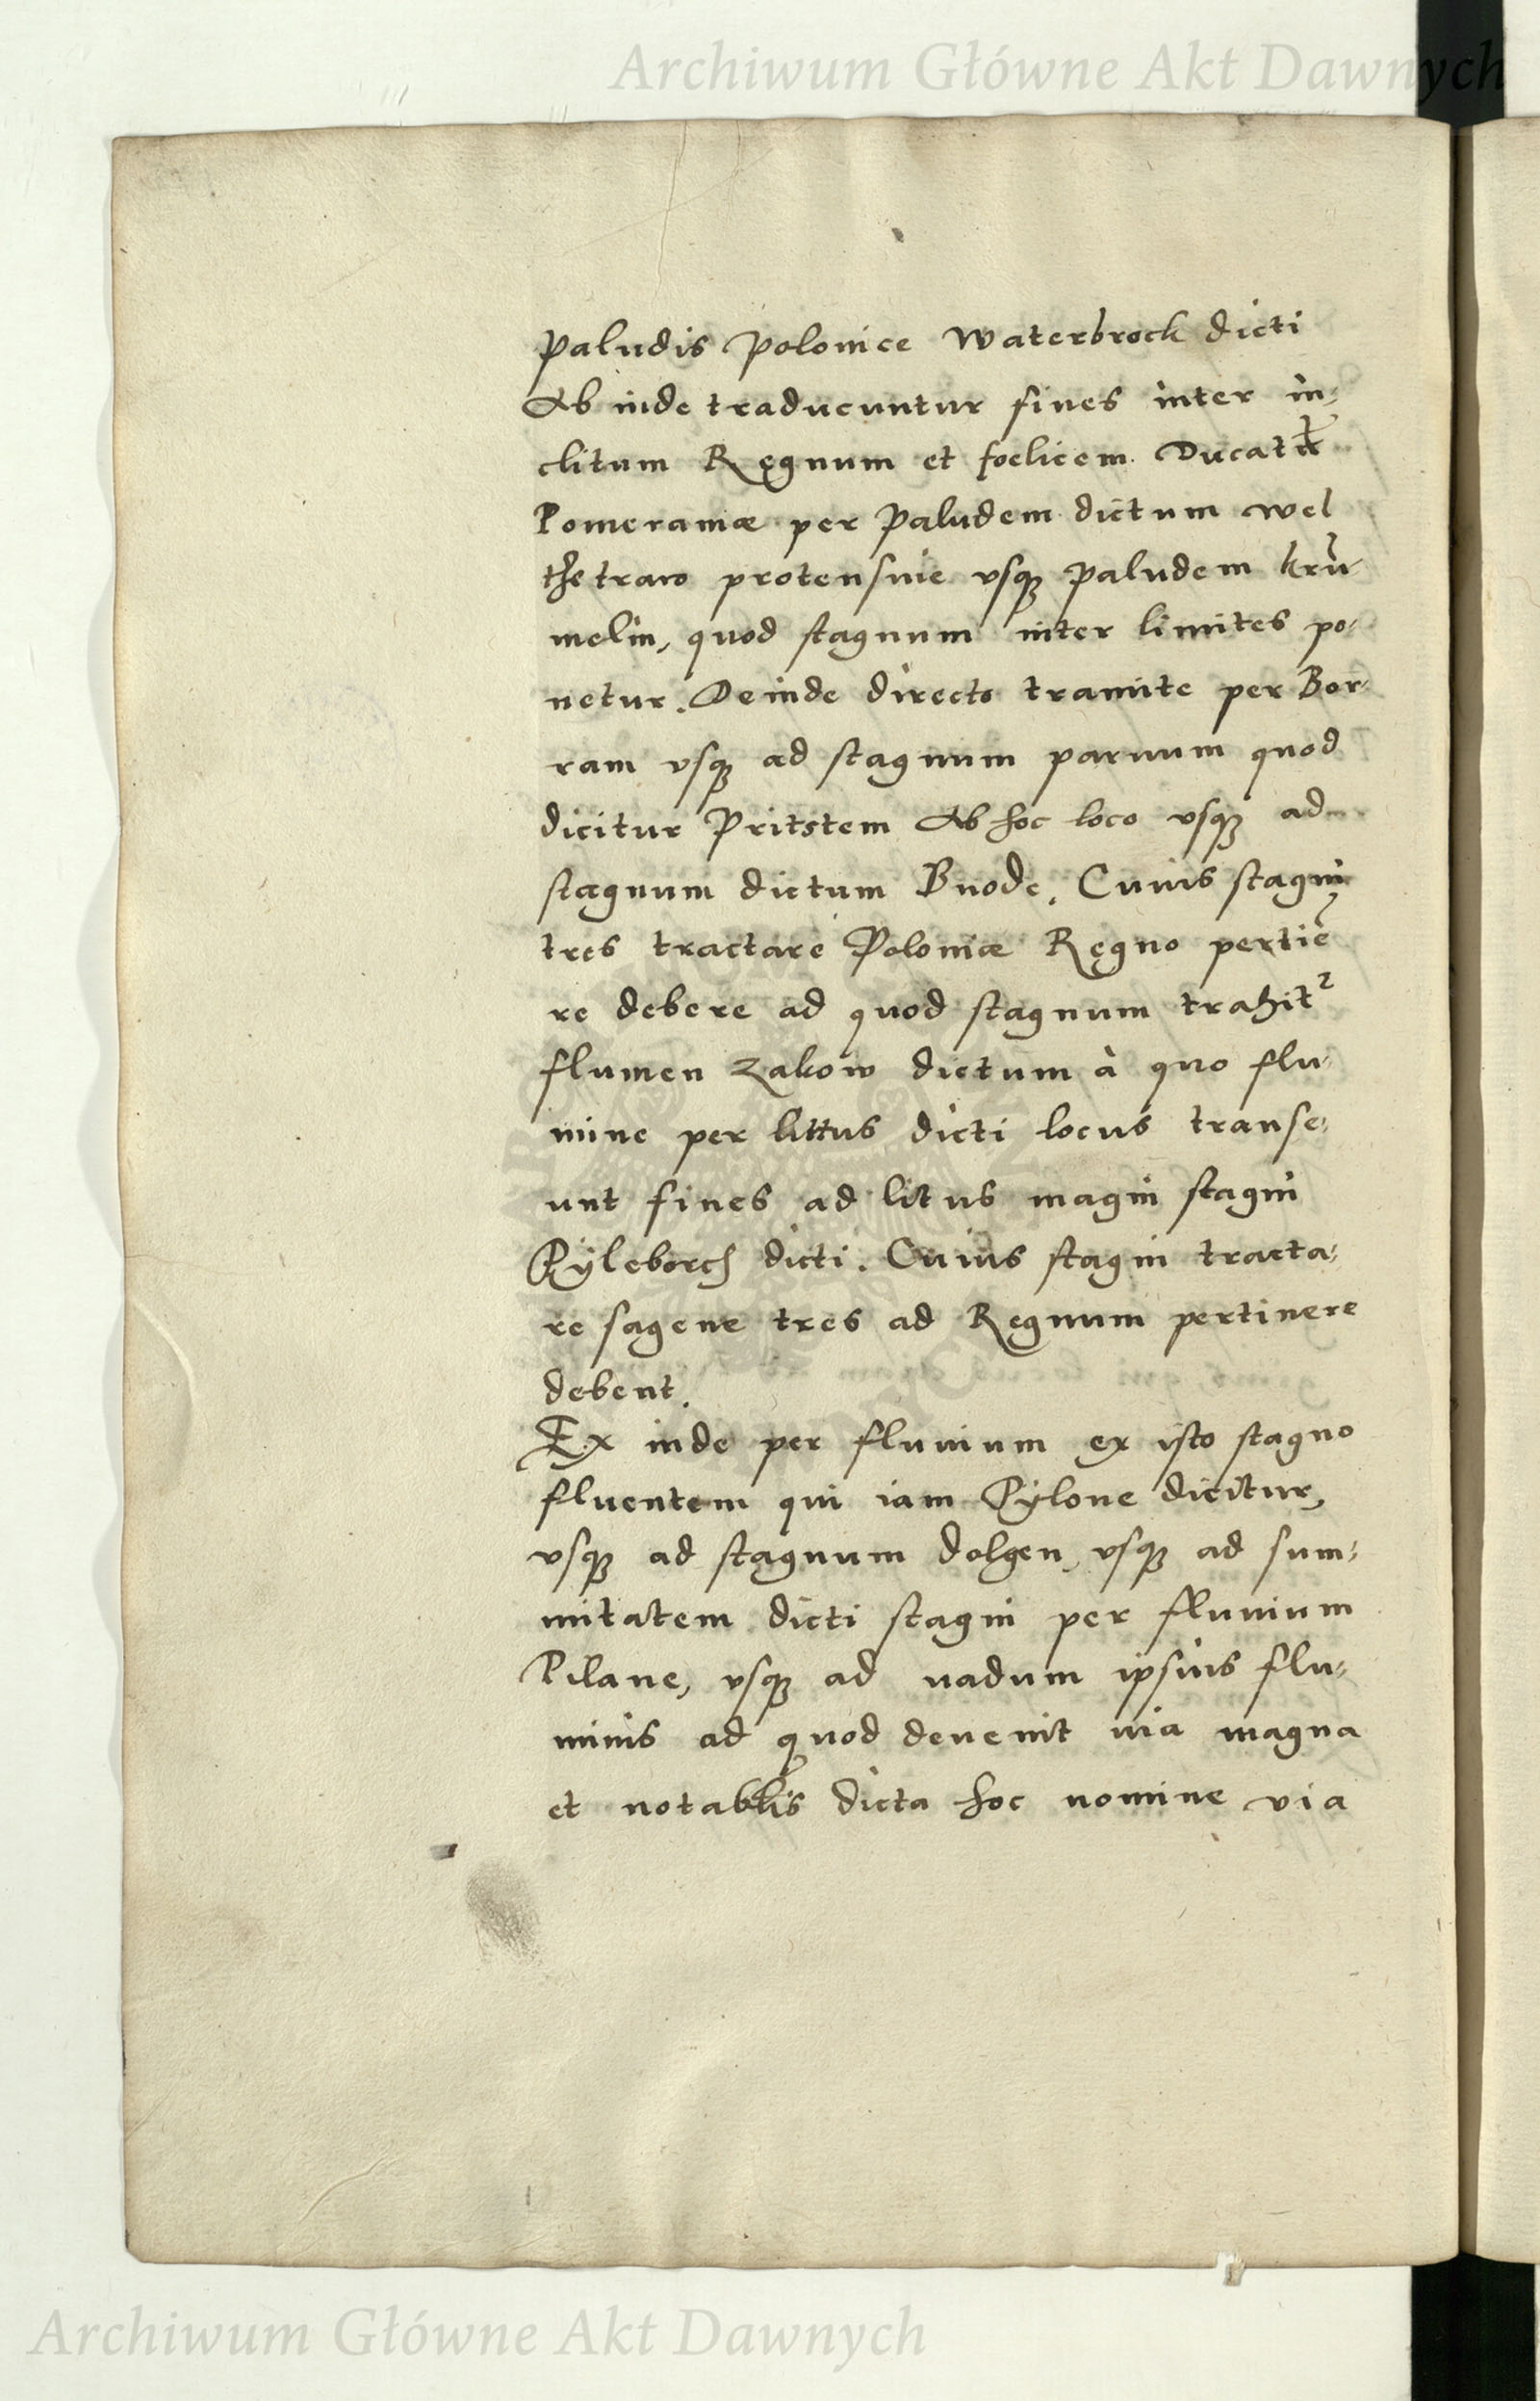 Archiwum Główne Akt Dawnych
Paludis Polonice Waterbrock dicti
Ab inde traducuntur fines inter in-
clitum Regnum et foelicem Ducatū
Pomeraniæ per Paludem dictum wel
thetraw protensiue vsqꝫ paludem krū-
melin, quod stagnum inter limites po-
netur. Deinde directo tramite per Bor-
ram vsqꝫ ad stagnum paruum quod
dicitur Pritstem Ab hoc loco vsqꝫ ad
stagnum dictum Buode. Cuius stagni
tres tractare Poloniæ Regno pertiē
re debere ad quod stagnum trahit²
flumen Zakow dictum à quo flu-
mine per littus dicti locus transe-
unt fines ad litus magni stagni
Pÿleborch dicti. Cuius stagni tracta-
re sagene tres ad Regnum pertinere
debent.
Ex inde per fluuium ex isto stagno
fluentem qui iam Pÿlone dicitur,
vsqꝫ ad stagnum dolgen, vsqꝫ ad sum-
mitatem dicti stagni per fluuium
Pilane, vsqꝫ ad uadum ipsius flu-
minis ad quod deuenit uia magna
et notabilis dicta hoc nomine via
Archiwum Główne Akt Dawnych